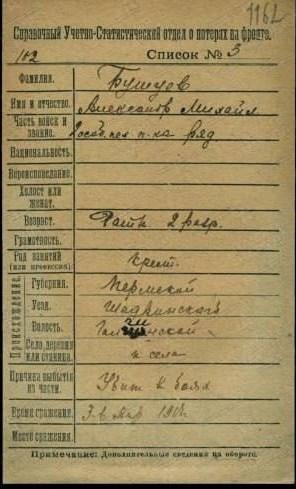 1162
Справочный Учетно-Статистической отдел о потерях на фронте.
102 Список № 3
Фамилия. Бушуов
Имя и отчество. Александр Михайл
Часть войск и звание. ряд
Национальность.
Вероисповедание.
Холост или женат.
Возраст. Ратн. 2 разр.
Грамотность.
Род занятий (или профессия). Крест.
Происхождение.
Губерния. Пермской
Уезд. Шадринского
Волость.
Село, деревня или станица. и села
Причина выбытия из части. Убит в боях
Время сражения.
Место сражения.
Примечание: Дополнительные сведения на обороте.